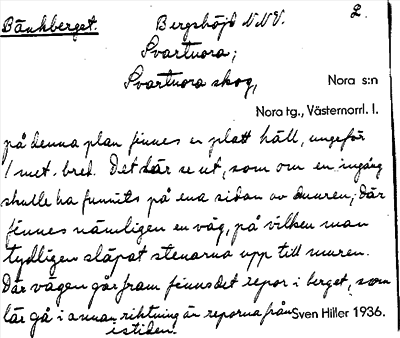 Bänkberget. Bergshöjd NNV. 2.
Svartnora;
Svartnora skog,
Nora s:n
Nora tg., Västernorrl. l.
på denna plan finnes en platt häll, ungefär
1 met. bred. Det där se ut, som om en ingång
skulle ha funnits på ena sidan av muren; där
finnes nämligen en väg, på vilken man
tydligen släpat stenarna upp till muren.
Där vägen går fram finns det repor i berget, som
lär gå i annan riktning än reporna från Sven Hiller 1936.
istiden.